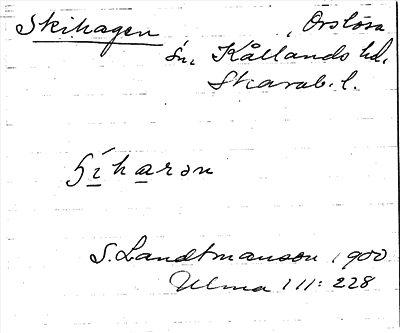 Skihagen, Orslösa
sn, Kållands hd.
Skarab. l.
ʃi̱ha̱rən
S. Landtmanson 1900
Ulma 111: 228